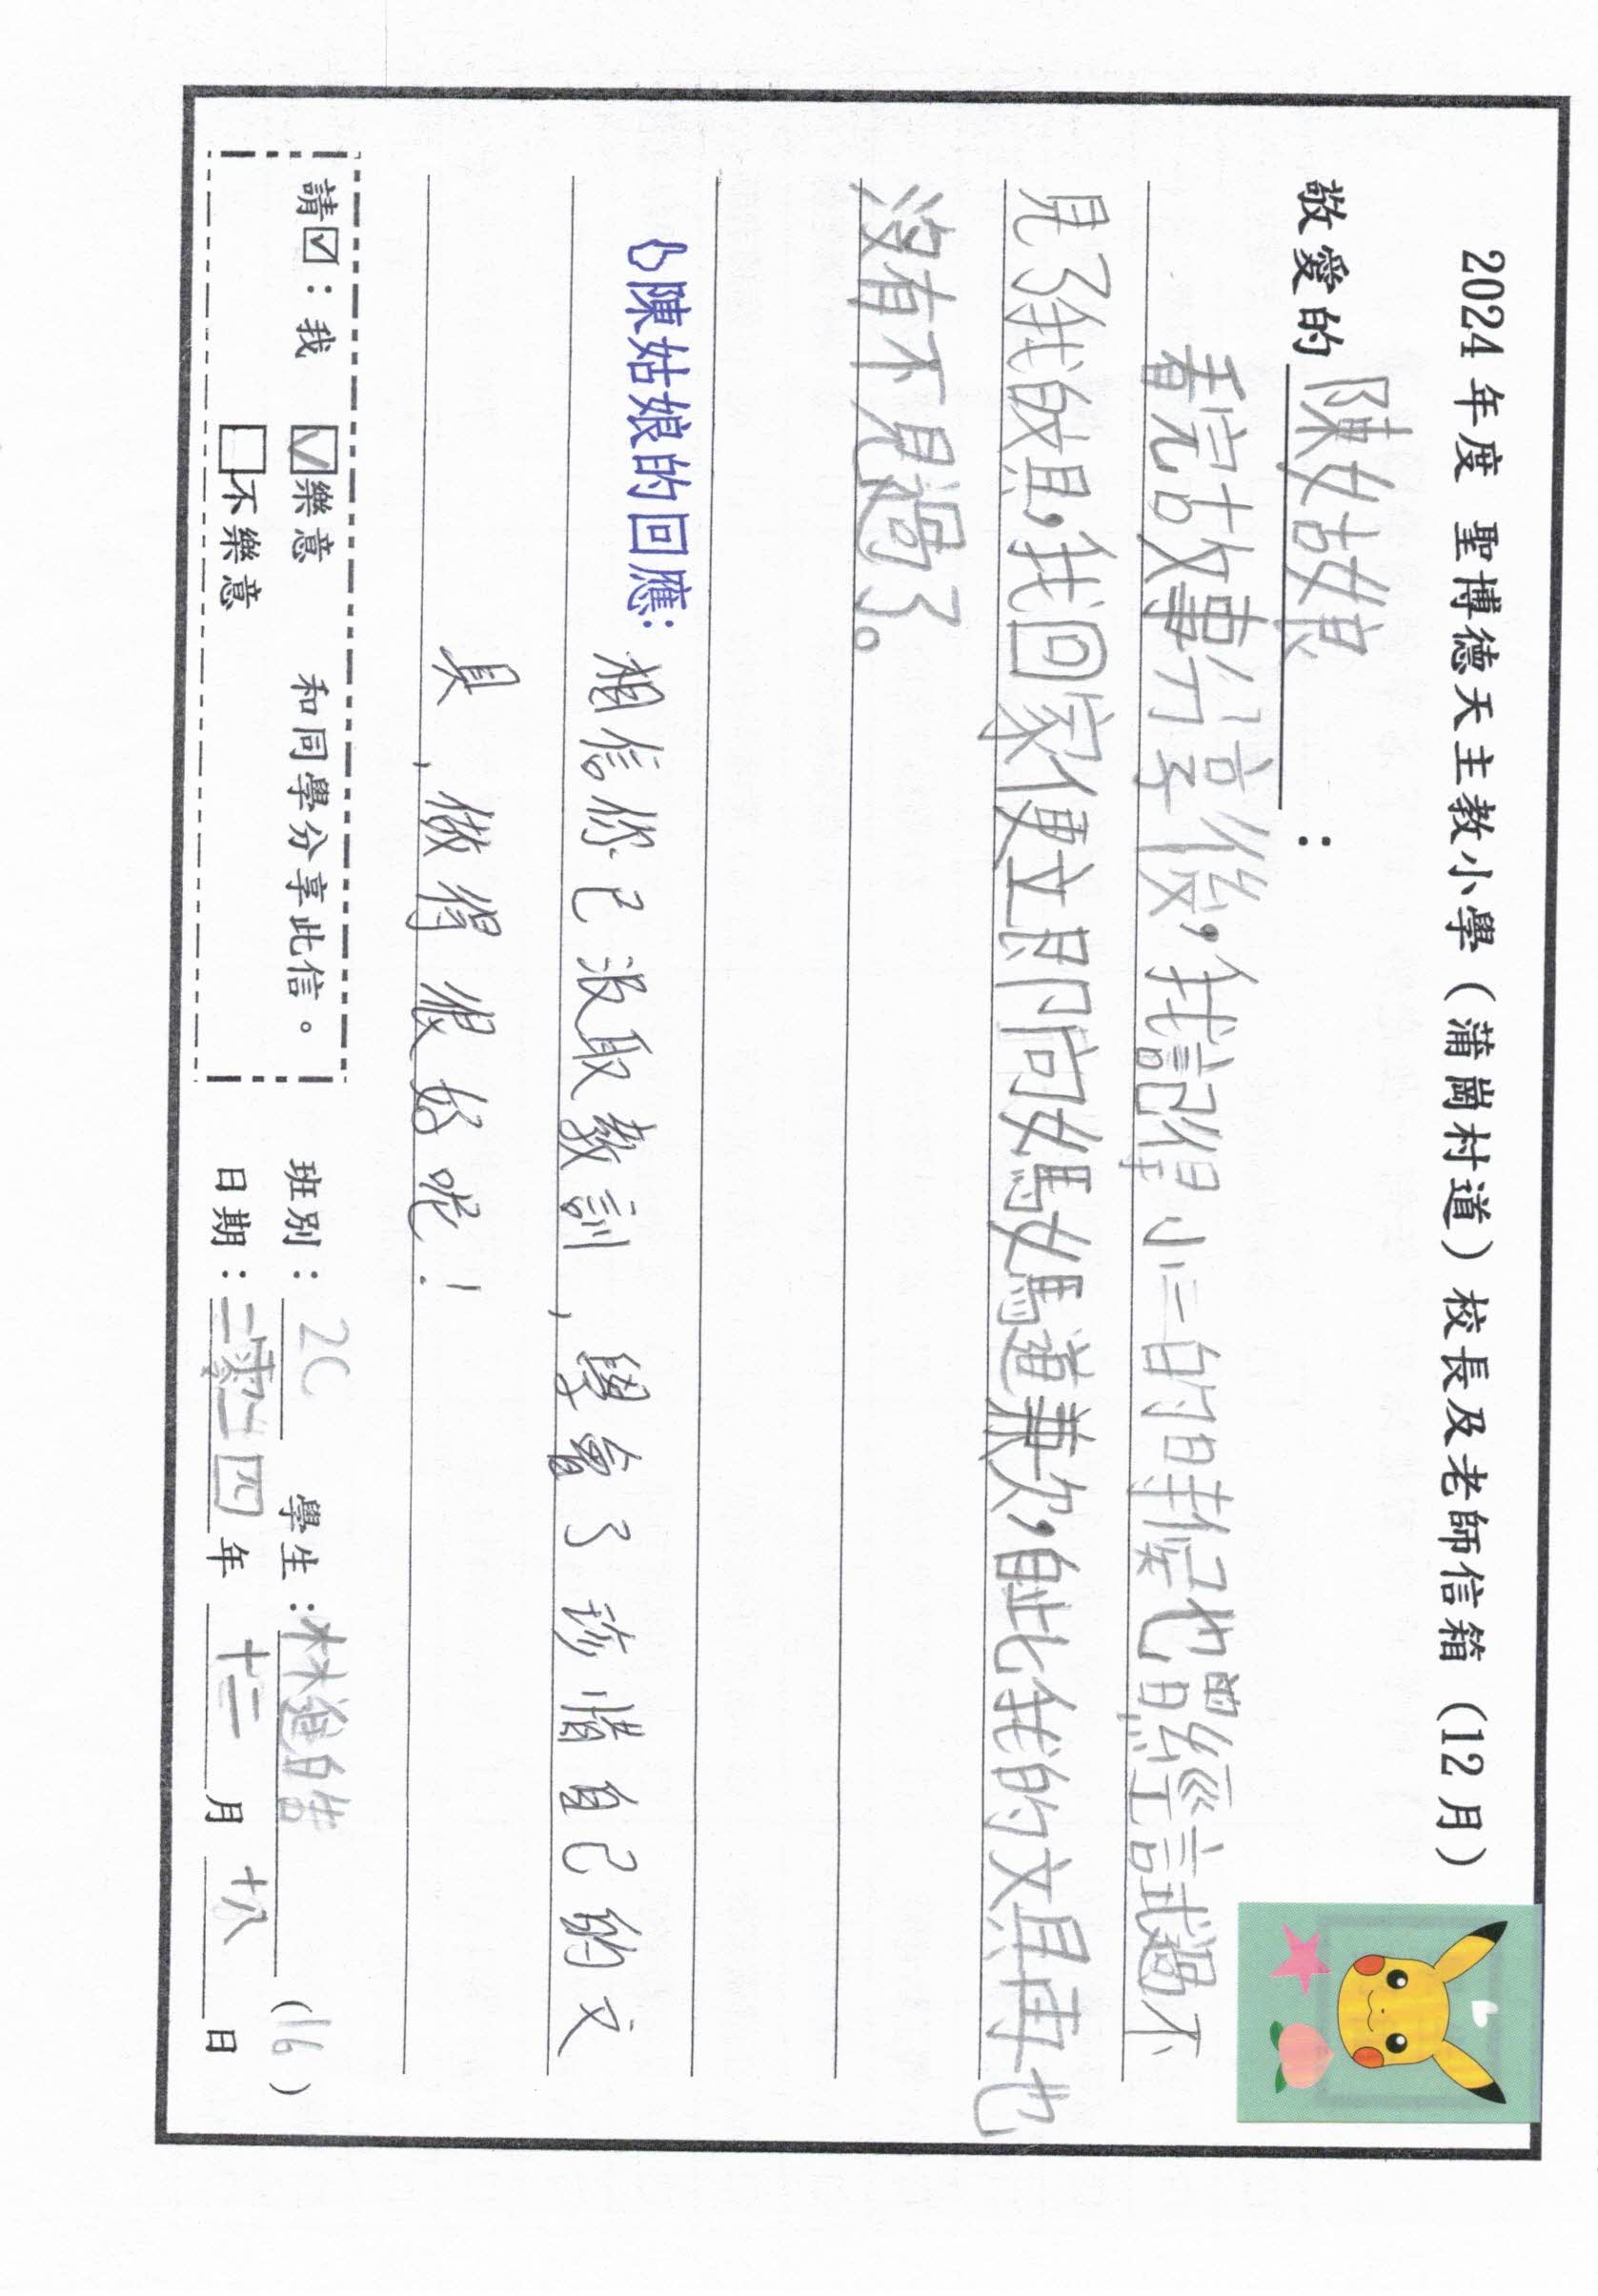 2024 年度 聖博德天主教小學（蒲崗村道）校長及老師信箱（12 月）
敬愛的 陳姑娘 ：
看完故事分享後，我記得小二的時候也曾經試過不
見了我的，我回家便立即向媽媽道歉，自此我的文具再也
沒有不見過了。
陳姑娘的回應：
相信你已汲取教訓，學會了珍惜自己的文
具，做得很好呢！
請☑：我 ☑樂意 和同學分享此信。
□不樂意
班別：2C 學生：林 (16)
日期：二零二四年 十二 月 十八 日